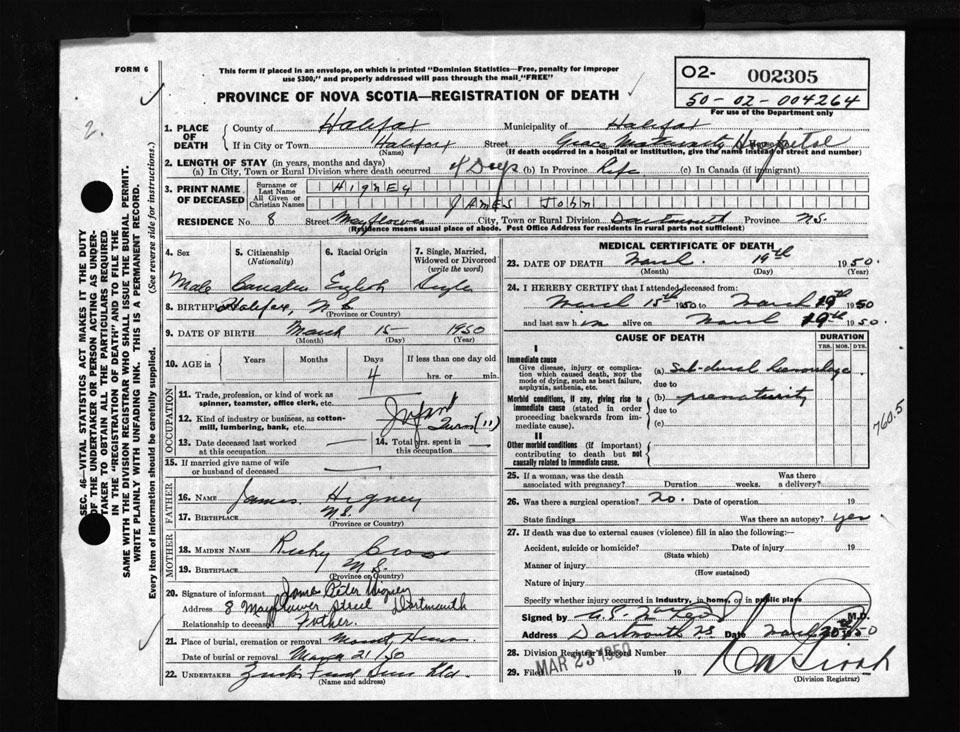 FORM 6
This form if placed in an envelope, on which is printed "Dominion Statistics—Free, penalty for improper
use $300," and properly addressed will pass through the mail "FREE"
PROVINCE OF NOVA SCOTIA—REGISTRATION OF DEATH
O2- 002305
50-02-004264
For use of the Department only
2.
SEC. 46—VITAL STATISTICS ACT MAKES IT THE DUTY
OF THE UNDERTAKER OR PERSON ACTING AS UNDER-
TAKER TO OBTAIN ALL THE PARTICULARS REQUIRED
IN THE "REGISTRATION OF DEATH" AND TO FILE THE
SAME WITH THE DIVISION REGISTRAR WHO SHALL ISSUE THE BURIAL PERMIT.
WRITE PLAINLY WITH UNFADING INK. THIS IS A PERMANENT RECORD.
Every item of information should be carefully supplied. (See reverse side for instructions.)
1. PLACE OF DEATH County of Halifax Municipality of Halifax
If in City or Town Halifax Street Grace Maternity Hospital
(Name) (If death occurred in a hospital or institution, give the name instead of street and number)
2. LENGTH OF STAY (in years, months and days)
(a) In City, Town or Rural Division where death occurred 4 Days (b) In Province Life (c) In Canada (if immigrant)
3. PRINT NAME OF DECEASED Surname or Last Name HIGNEY
All Given or Christian Names JAMES JOHN
RESIDENCE No. 8 Street Mayflower City, Town or Rural Division Dartmouth Province N.S.
(Residence means usual place of abode. Post Office Address for residents in rural parts not sufficient)
4. Sex 5. Citizenship (Nationality) 6. Racial Origin 7. Single, Married, Widowed or Divorced (write the word)
Male Canadian English Single
8. BIRTHPLACE Halifax, N.S.
(Province or Country)
9. DATE OF BIRTH March 15 1950
(Month) (Day) (Year)
10. AGE in Years Months Days If less than one day old
4 hrs. or min.
OCCUPATION
11. Trade, profession, or kind of work as spinner, teamster, office clerk, etc.
Infant
12. Kind of industry or business, as cotton-mill, lumbering, bank, etc.
Twin (11)
13. Date deceased last worked at this occupation
14. Total yrs. spent in this occupation
15. If married give name of wife or husband of deceased
FATHER
16. NAME James Higney
17. BIRTHPLACE N.S.
(Province or Country)
MOTHER
18. MAIDEN NAME Cross
19. BIRTHPLACE N.S.
(Province or Country)
20. Signature of informant James Peter Higney
Address 8 Mayflower Street Dartmouth
Relationship to deceased Father.
21. Place of burial, cremation or removal
Date of burial or removal March 21/50
22. UNDERTAKER Ltd.
(Name and address)
MEDICAL CERTIFICATE OF DEATH
23. DATE OF DEATH March 19th 1950.
(Month) (Day) (Year)
24. I HEREBY CERTIFY that I attended deceased from:
March 15th 1950 to March 19th 1950
and last saw him alive on March 19th 1950.
CAUSE OF DEATH DURATION
YRS. MOS. DYS.
I
Immediate cause
Give disease, injury or complication which caused death, NOT the mode of dying, such as heart failure, asphyxia, asthenia, etc.
(a) Sub-dural hemorrhage
due to
Morbid conditions, if any, giving rise to immediate cause (stated in order proceeding backwards from immediate cause).
(b) prematurity
due to
(c)
II
Other morbid conditions (if important) contributing to death but not causally related to immediate cause.
760.5
25. If a woman, was the death associated with pregnancy? Duration weeks. Was there a delivery?
26. Was there a surgical operation? no. Date of operation 19
State findings Was there an autopsy? yes
27. If death was due to external causes (violence) fill in also the following:—
Accident, suicide or homicide? Date of injury 19
(State which)
Manner of injury
(How sustained)
Nature of injury
Specify whether injury occurred in industry, in home, or in public place
Signed by M.D.
Address Dartmouth N.S. Date 1950
28. Division Registrar's Record Number
29. Filed MAR 23 1950 19
(Division Registrar)